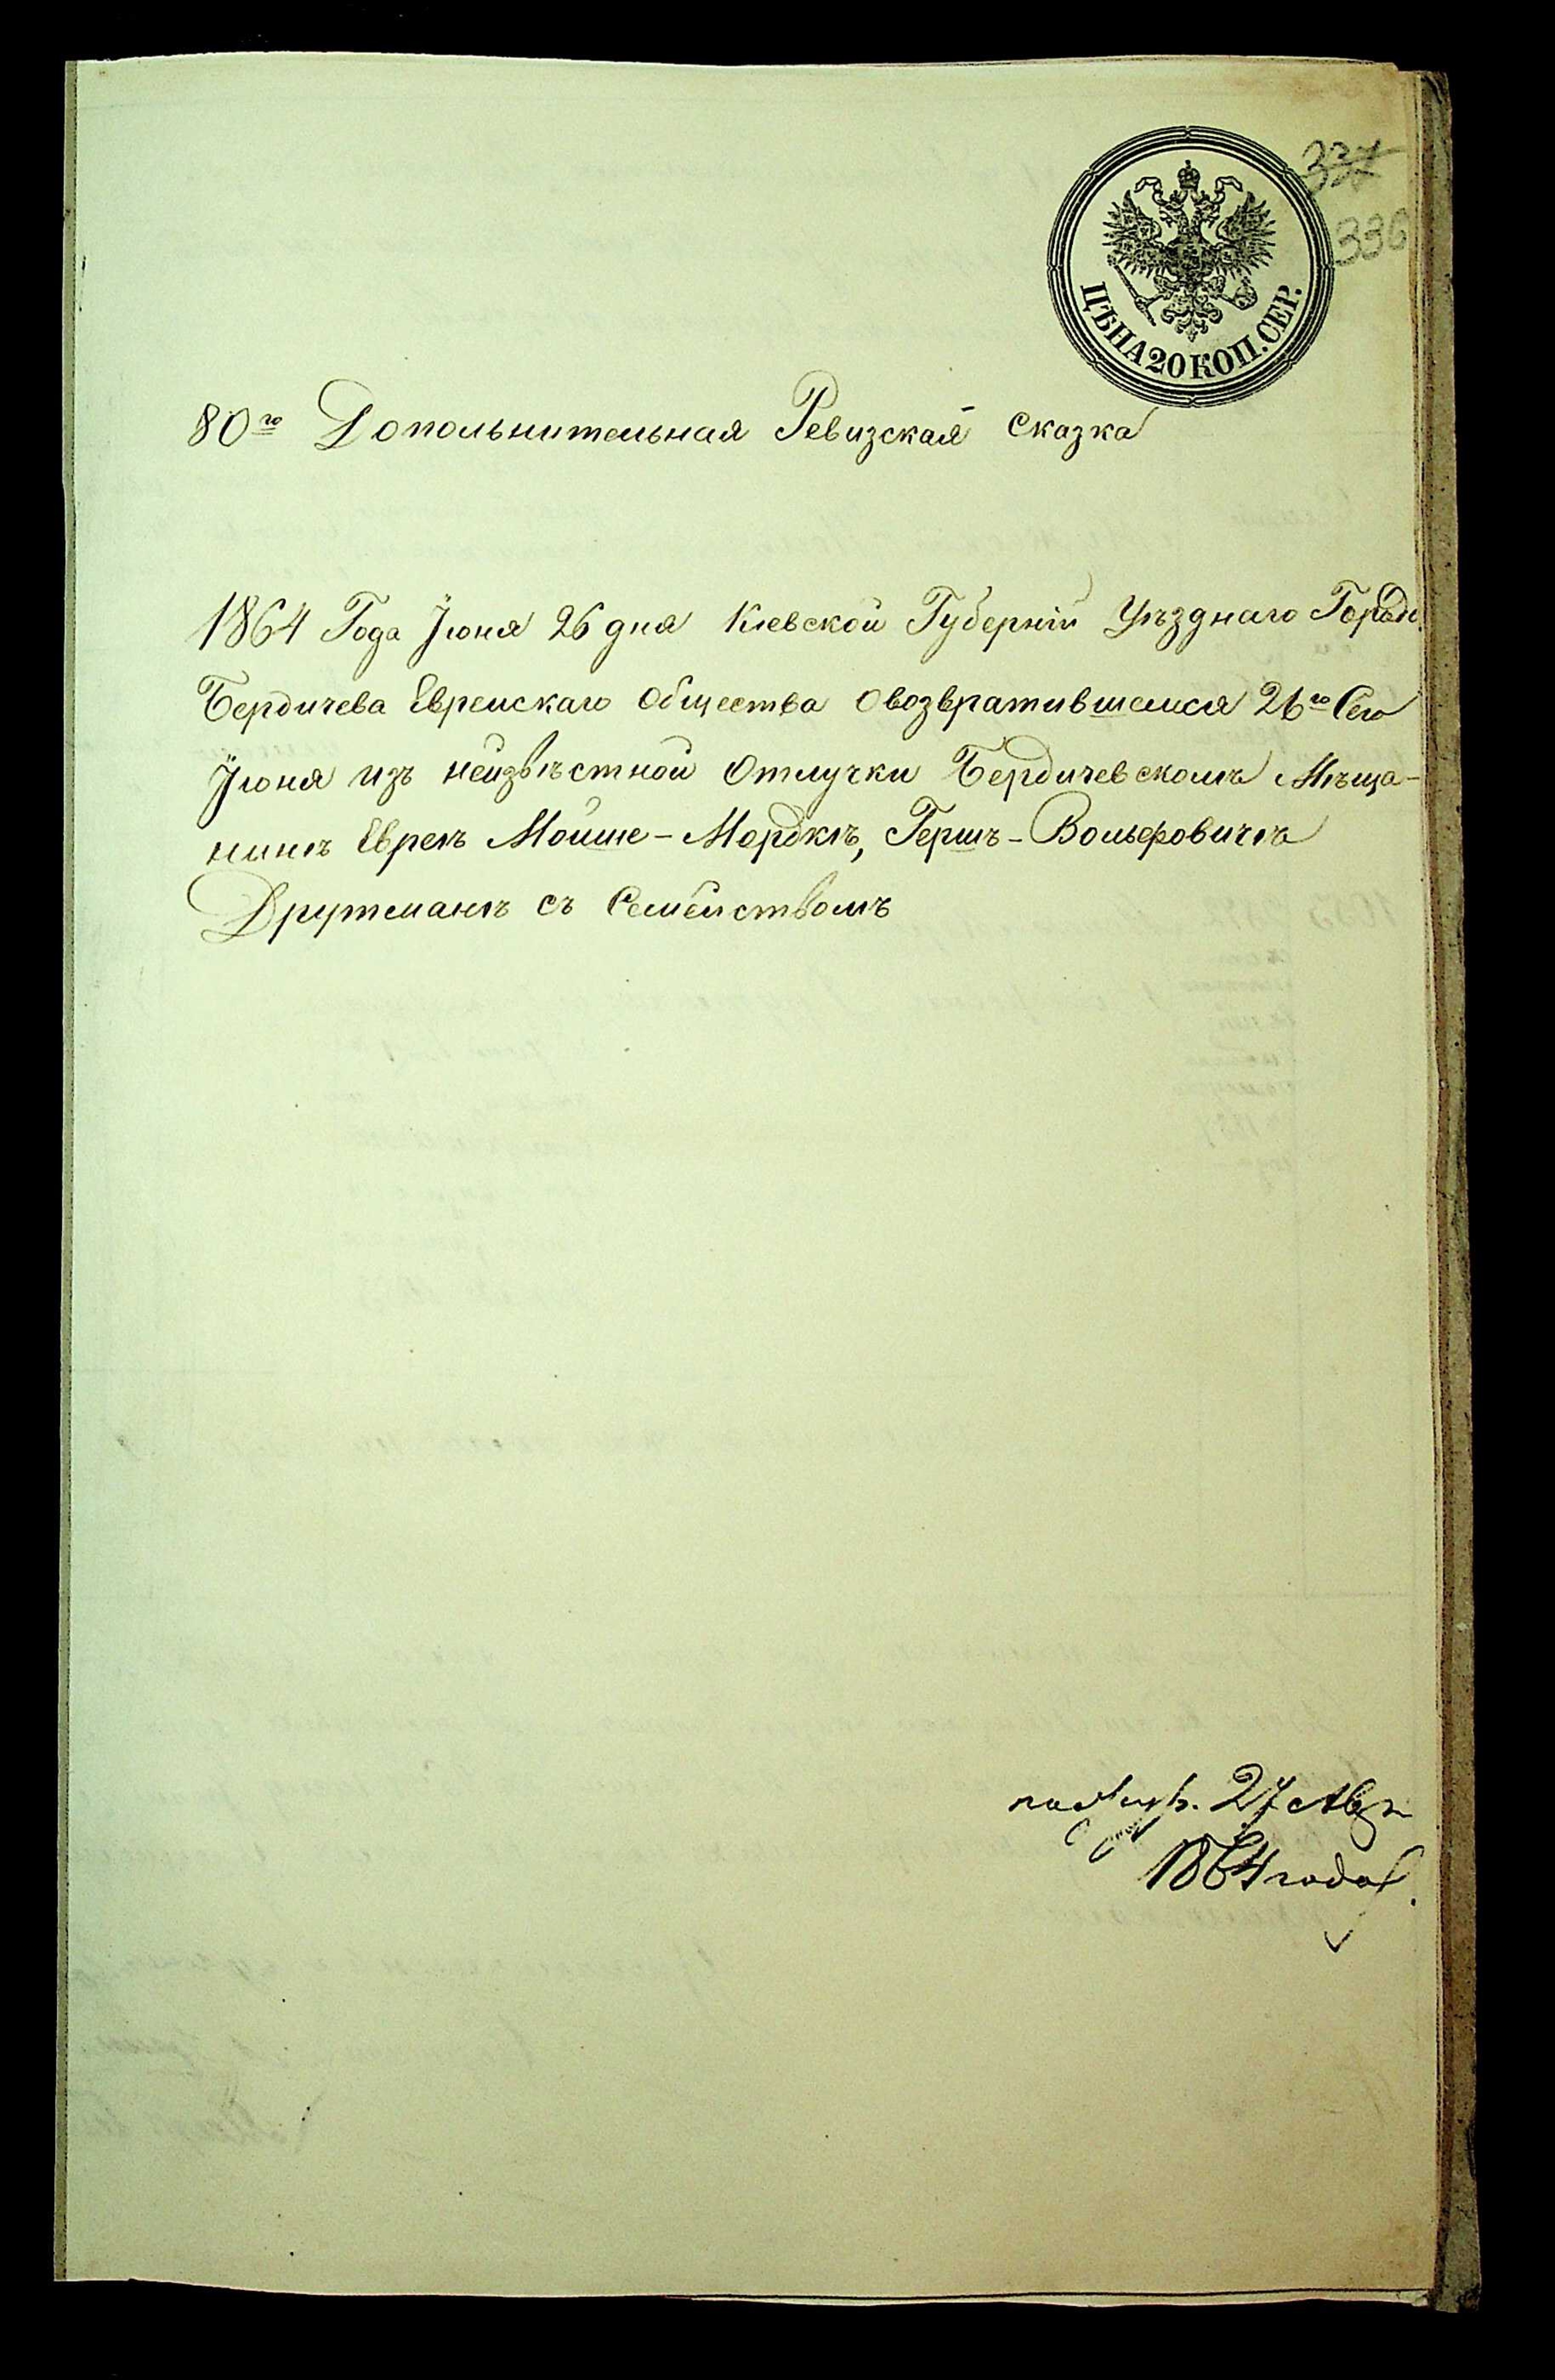 37
336
ЦѢНА 20 КОП. СЕР.
80го Допольнительная Ревизская Сказка
1864 Года Іюня 26 дня Кіевской Губерніи Уѣзднаго Города
Бердичева Еврейскаго Общества Овозвратившемся 26го Сего
Іюня изъ неизвѣстной Отлучки Бердичевскомъ Мѣща-
нинѣ Евреѣ Мойше-Мордкѣ, Гершъ-Вольфовичѣ
Друтманѣ съ Семействомъ
27 Авг
1864 года